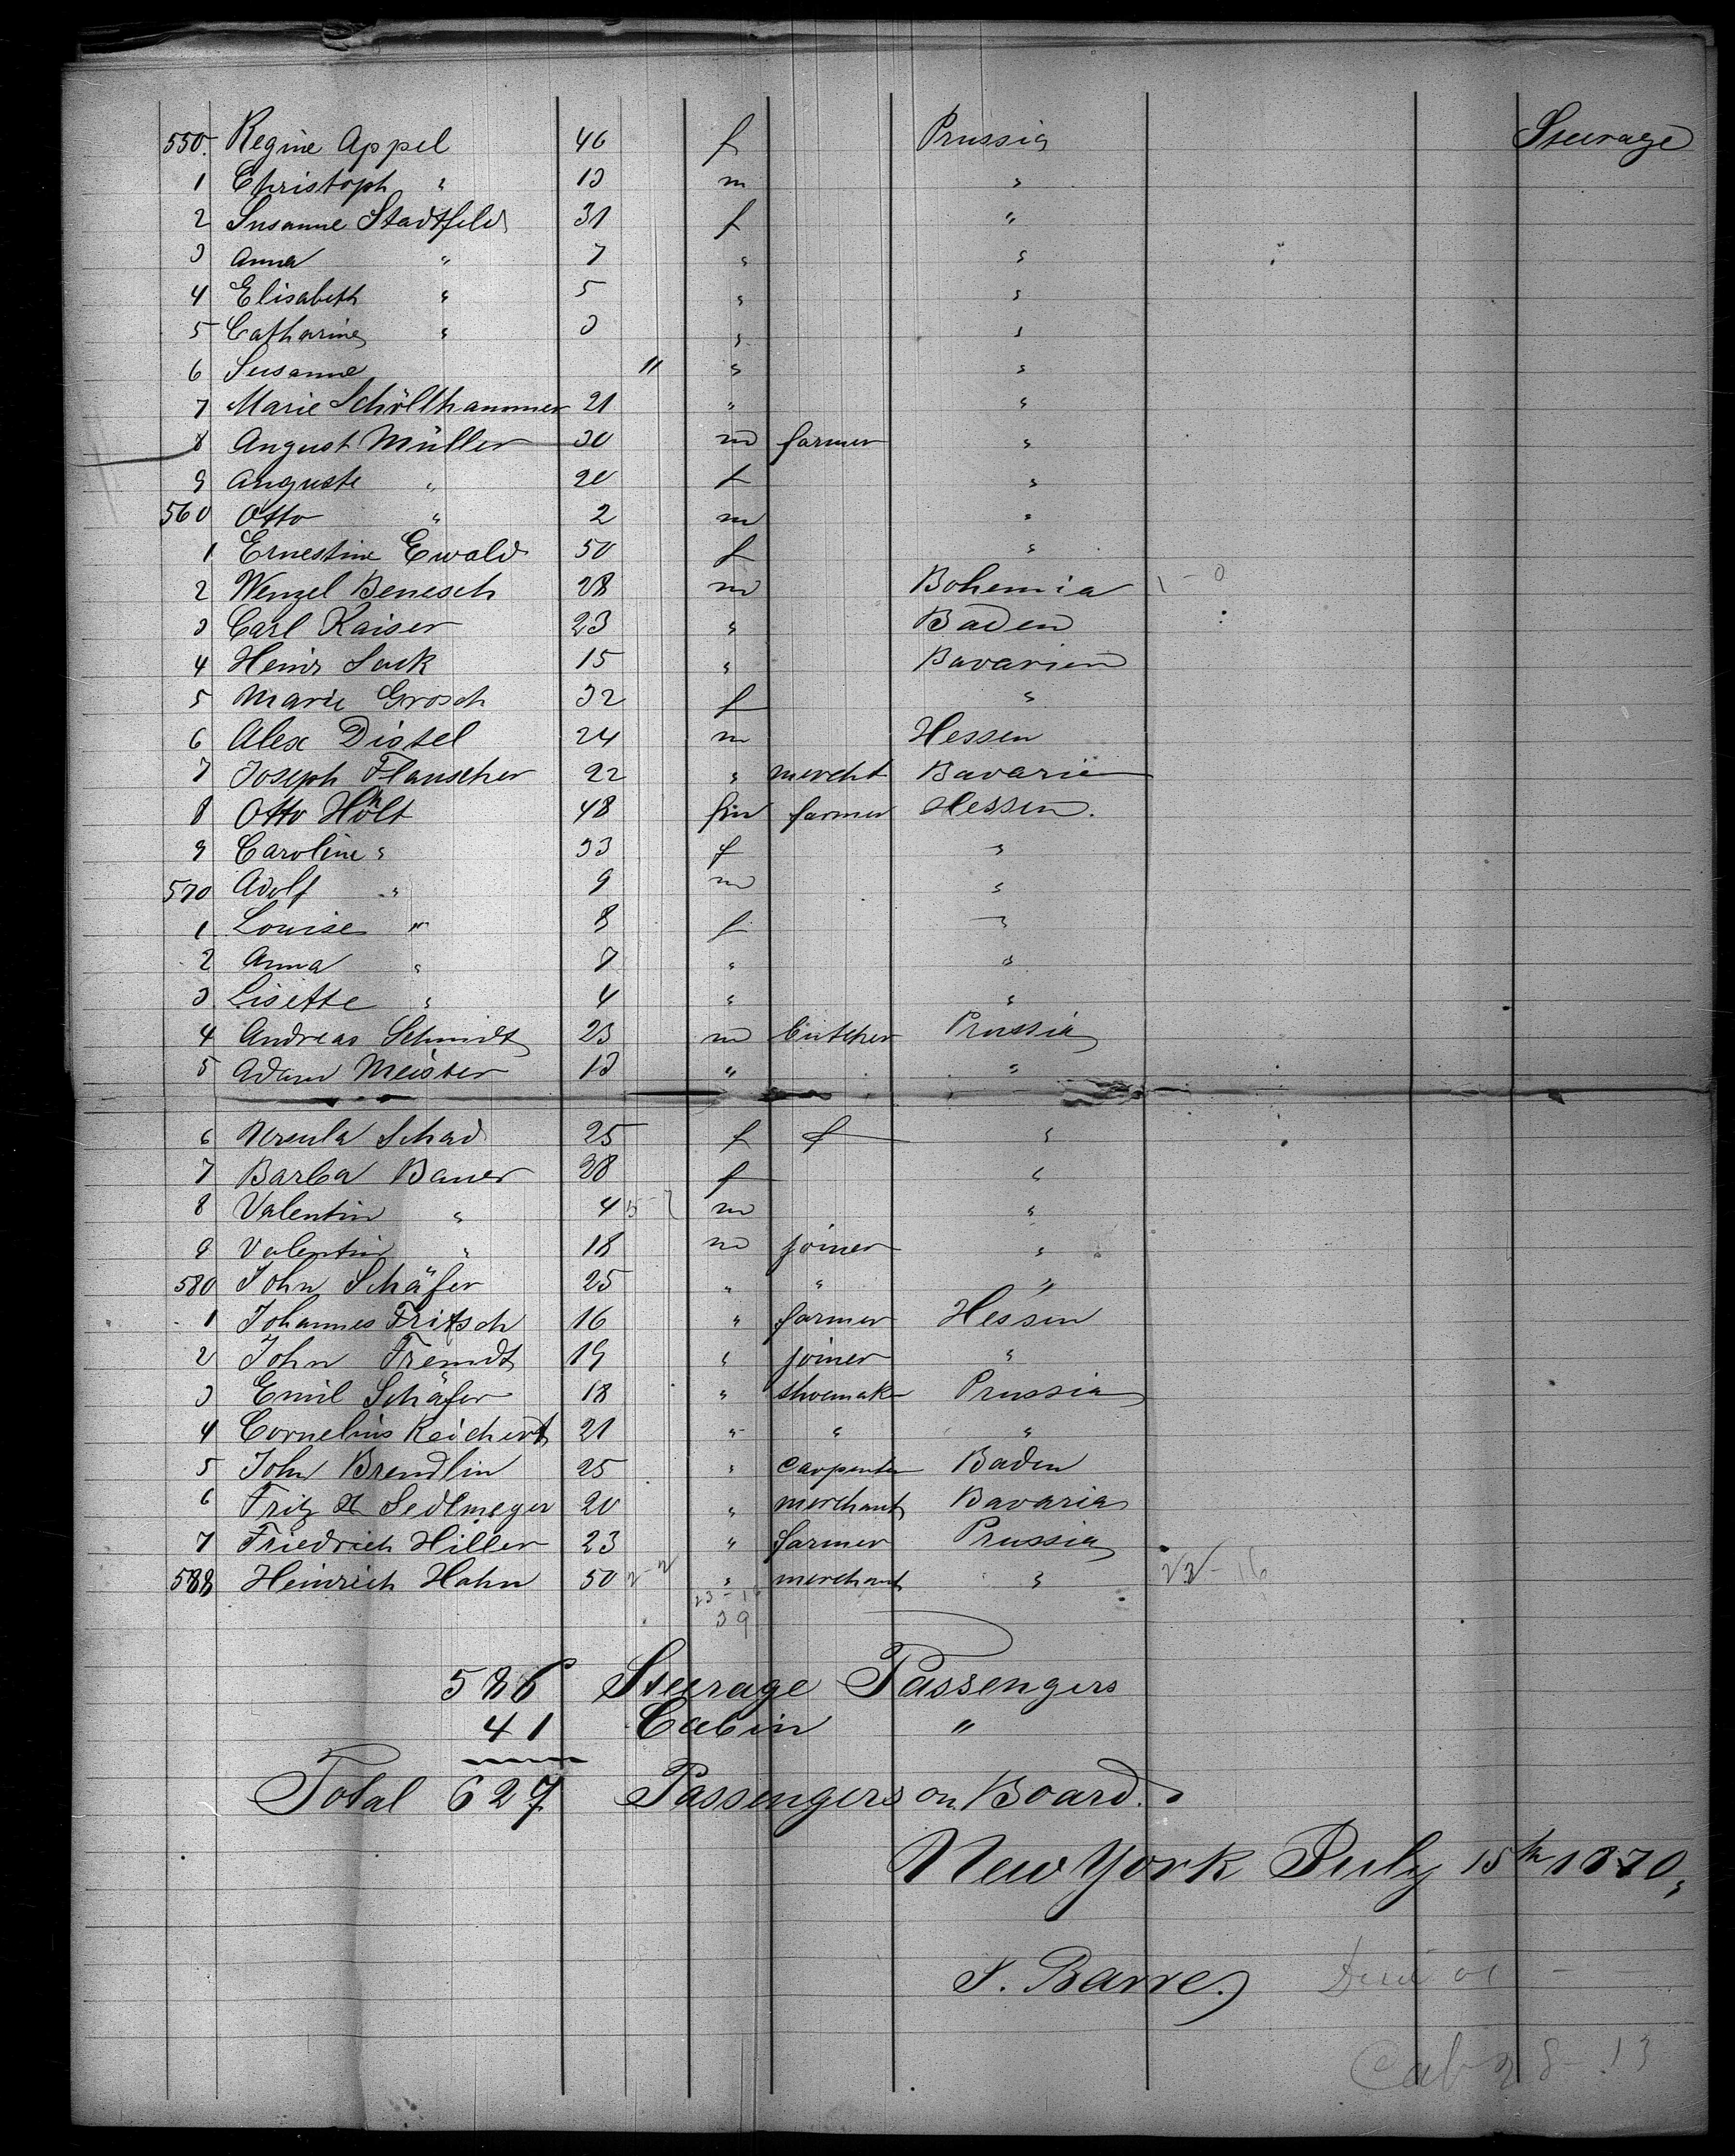 550. Regine Appel 46 f Prussia Steerage
1 Christoph " 13 m "
2 Susanne Stadtfeld 31 f "
3 Anna " 7 " "
4 Elisabeth " 5 " "
5 Catharine " 3 " "
6 Susanne " " "
7 Marie Schöllhammer 21 " "
8 August Müller 30 m farmer "
9 Auguste " 20 f "
560 Otto " 2 m "
1 Ernestine Ewald 50 f "
2 Wenzel Benesch 28 m Bohemia 1 - 0
3 Carl Kaiser 23 " Baden
4 Heinr Sack 15 " Bavarien
5 Marie Grosch 32 f "
6 Alex Distel 24 m Hessen
7 Joseph Flauscher 22 " mercht Bavaria
8 Otto Hölt 48 m farmer Hessen.
9 Caroline " 33 f "
570 Adolf " 9 m "
1 Louise " 8 f "
2 Anna " 7 " "
3 Lisette " 4 " "
4 Andreas Schmidt 23 m butcher Prussia
5 Adam Meister 13 " "
6 Ursula Schad 25 f f "
7 Barba Bauer 28 f "
8 Valentin " 4 m "
9 Valentin " 18 m joiner "
580 John Schäfer 25 " " "
1 Johannes Fritsch 16 " farmer Hessen
2 John Fremdt 19 " joiner "
3 Emil Schäfer 18 " shoemak Prussia
4 Cornelius Reichert 21 " " "
5 John Brendlin 25 " carpenter Baden
6 Fritz Sedlmeyer 20 " merchant Bavaria
7 Friedrich Hiller 23 " farmer Prussia
588 Heinrich Hahn 50 2-2 " merchant " 22 - 16
23 - 16
39
586 Steerage Passengers
41 Cabin "
Total 627 Passengers on Board.
New York July 15th 1870,
Barre
Cab 28 - 13